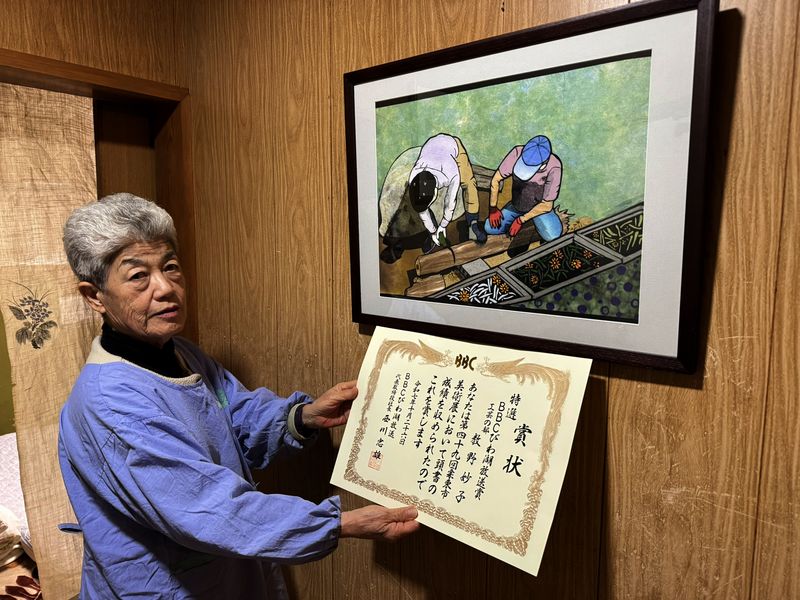 BBC
賞状
特選
BBCびわ湖放送賞
工芸の部
牧野妙子
あなたは第四十九回栗東市
美術展において頭書の
成績を収められたので
これを賞します
令和七年十月二十六日
BBCびわ湖放送
代表取締役社長 西川忠雄